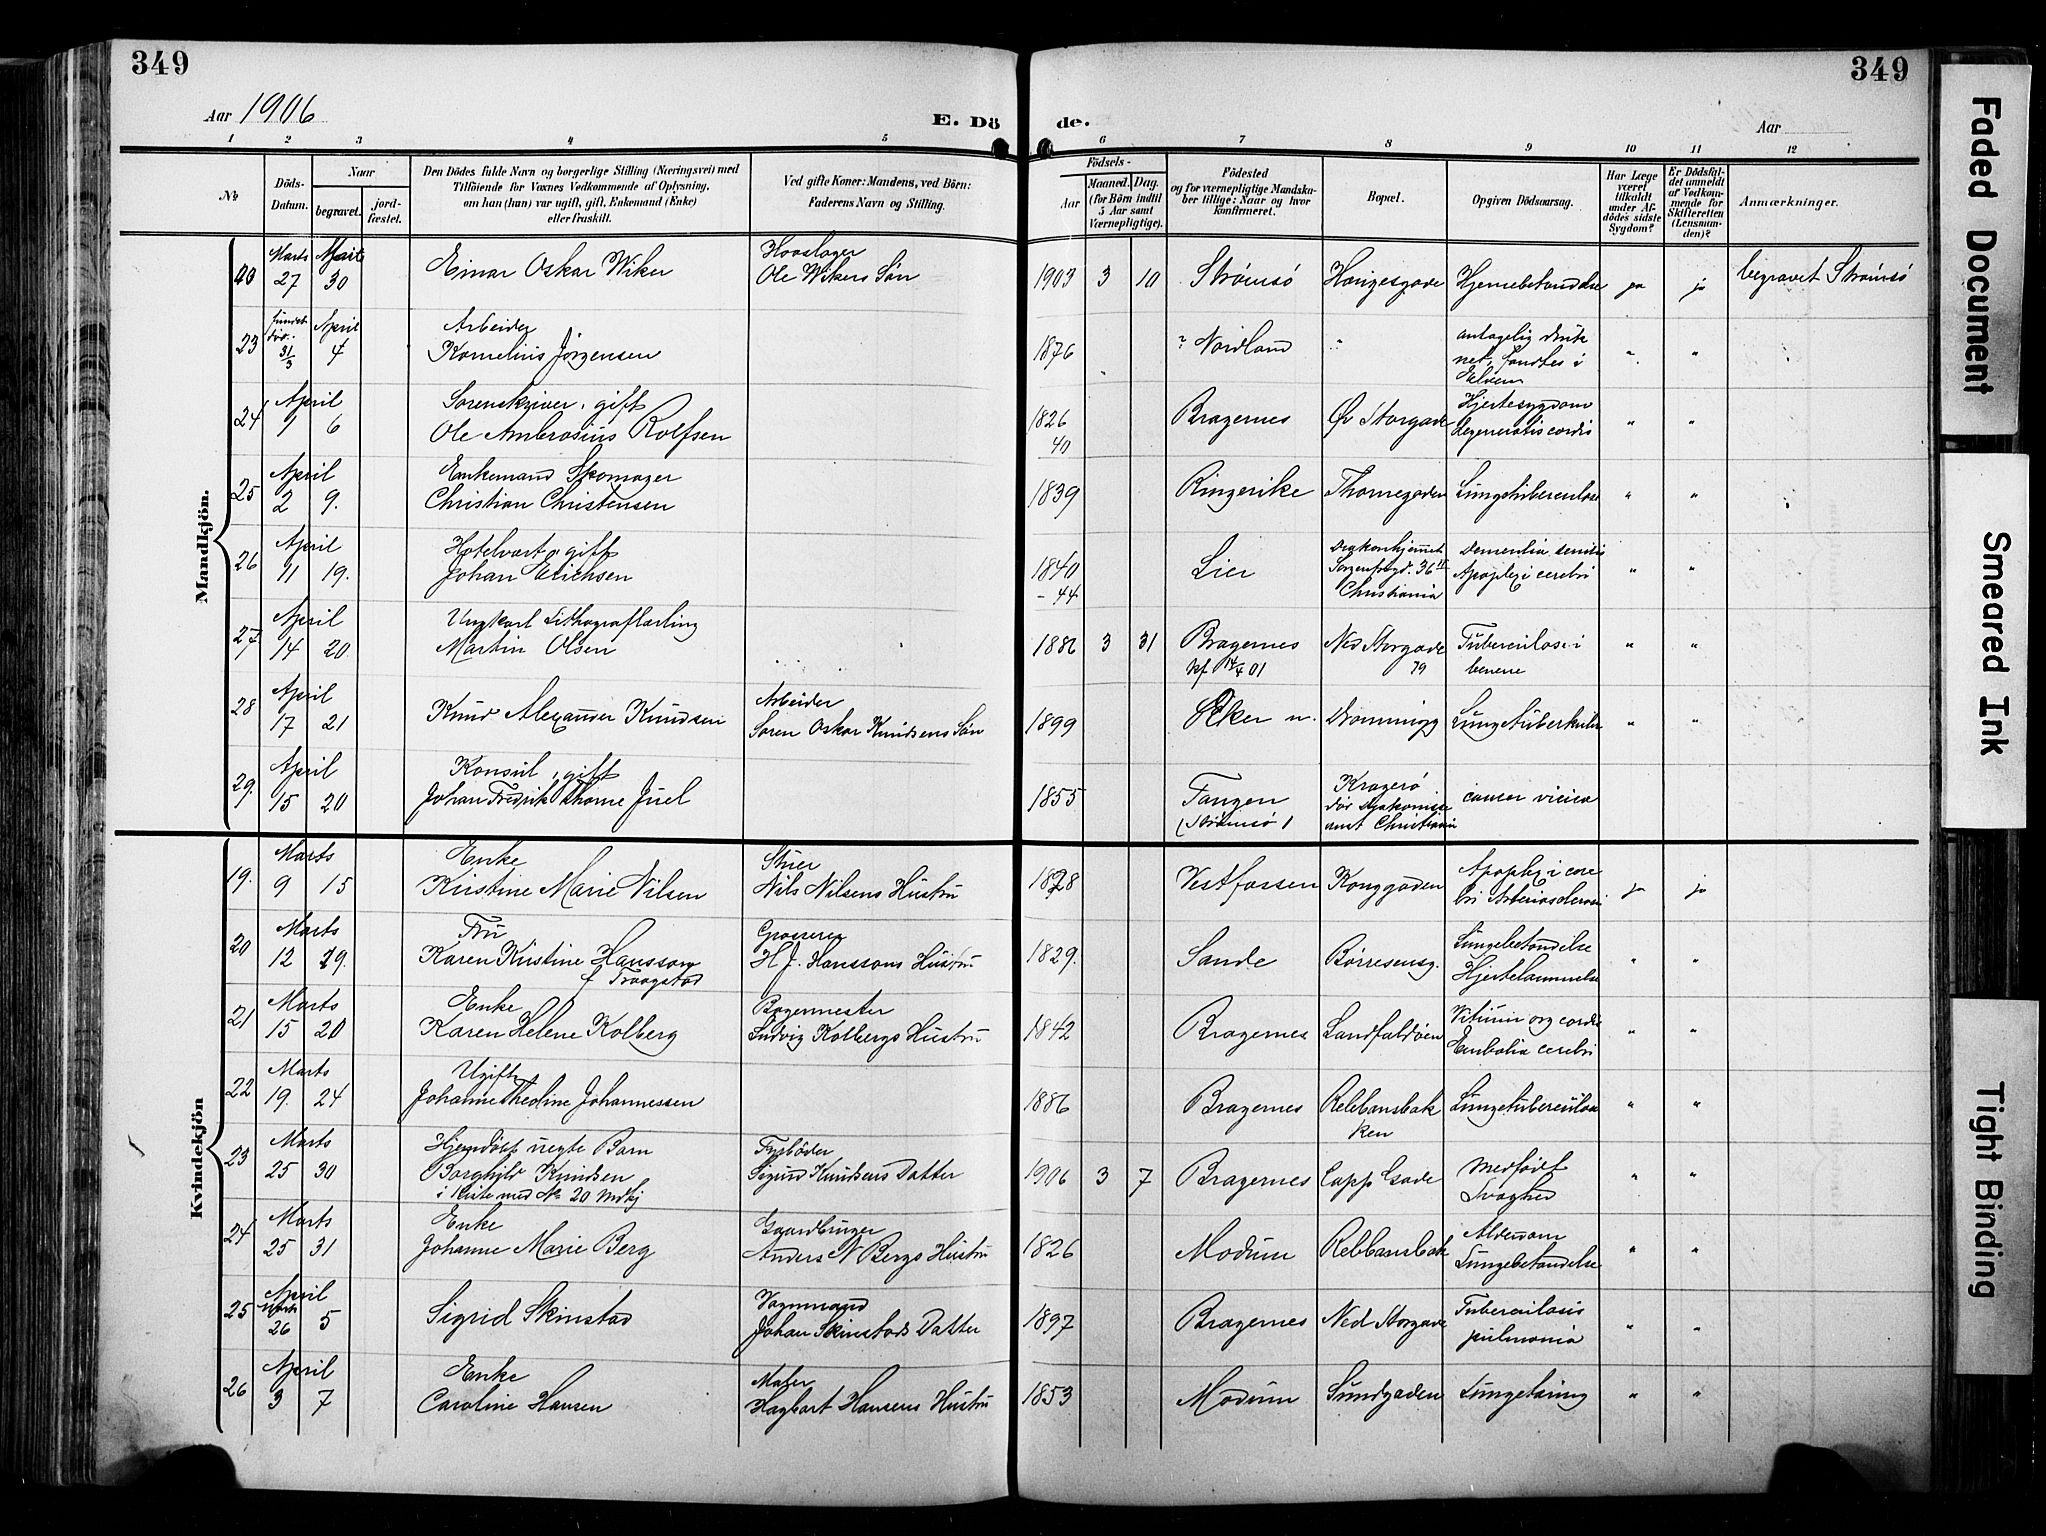 349
349
Aar 1906
E. Dö de.
Aar
1 2 3 4 5 6 7 8 9 10 11 12
No
Döds-Datum.
Naar
begravet.
jord-fæstet.
Den Dödes fulde Navn og borgerlige Stilling (Næringsvei) med
Tilföiende for Voxnes Vedkommende af Oplysning,
om han (hun) var ugift, gift, Enkemand (Enke)
eller fraskilt.
Ved gifte Koner: Mandens, ved Börn:
Faderens Navn og Stilling.
Födsels-
Aar
Maaned. Dag.
(for Börn indtil
5 Aar samt
Værnepligtige).
Födested
og for værnepligtige Mandska-
ber tillige: Naar og hvor
konfirmeret.
Bopæl.
Opgiven Dödsaarsag.
Har Læge
været
tilkaldt
under Af-
dödes sidste
Sygdom?
Er Dödsfal-
det anmeldt
af Vedkom-
mende for
Skifteretten
(Lensman-
den)?
Anmærkninger.
Mandkjön.
Marts April Hovslager
27 30 Einar Oskar Wiker Ole Wikers Søn 1903 3 10 Strømsö Haugesgade ja ja begravet Strømsö
April Arbeider
23 31/3 4 Kornelius Jörgensen 1876 ? Nordland antagelig druk
net, fandtes i
Elven
April Sorenskriver, gift Hjertesygdom
24 1 6 Ole Ambrosius Rolfsen 1826 Bragernes Øv Storgade degeneratio cordis " "
40
April Enkemand Skomager
25 2 9. Christian Christensen 1839 Ringerike Thornegaden Lungetuberculose " "
April Hotelvært, gift Dementia senilis
26 11 19. Johan Erichsen 1840 Lier Apoplexi cerebri " "
- 44 Christiania
April Ungkarl Lithograflærling
27 14 20 Martin Olsen 1886 3 31 Bragernes Ned Storgade Tuberculose i " "
kf 14/4 01 79 benene
April Arbeider
28 17 21 Knud Alexander Knudsen Søren Oskar Knudsens Søn 1899 Eker Lungetuberkulose " "
April Konsul, gift Kragerö
29. 15 20 Johan Fredrik Thorne Juel 1855 Tangen død
(Strømsö) Christiania
Kvindekjön
Marts Enke
19. 9 15 Kirstine Marie Nilsen Nils Nilsens Hustru 1828 Vestfossen Konggaden Apoplexi cere
bri Arteriosclerose ja ja
Marts Fru Grosserer
20 12 19. Karen Kristine Hansson H J. Hanssons Hustru 1829. Sande Børresensg. Lungebetændelse " "
f Fraagstad Hjertelammelse
Marts Enke Bagermester
21 15 20 Karen Helene Kolberg Ludvig Kolbergs Hustru 1842 Bragernes Landfaldöen Vitium org cordis " "
Embolia cerebri
Marts Ugift
22 19. 24 Johanne Theoline Johannessen 1886 Bragernes Rebbansbak Lungetuberculose " "
ken
Marts Hjemdöbt uegte Barn Fyrböder
23 25 30 Borghild Knudsen Sigurd Knudsens Datter 1906 3 7 Bragernes Capp Gade Medfödt " "
i Kiste med No 20 Mdkj Svaghed
Marts Enke Gaardbruger Alderdom
24 25 31 Johanne Marie Berg Anders N Bergs Hustru 1826 Modum Rebbansbak Lungebetændelse " "
April Vognmand
Marts
25 26 5 Sigrid Skinstad Johan Skinstads Datter 1897 Bragernes Ned Storgade Tuberculosis " "
April Enke Maler
26 3 7 Caroline Hansen Hagbart Hansens Hustru 1853 Modum Sundgaden Lungetæring " "
Faded Document
Smeared Ink
Tight Binding